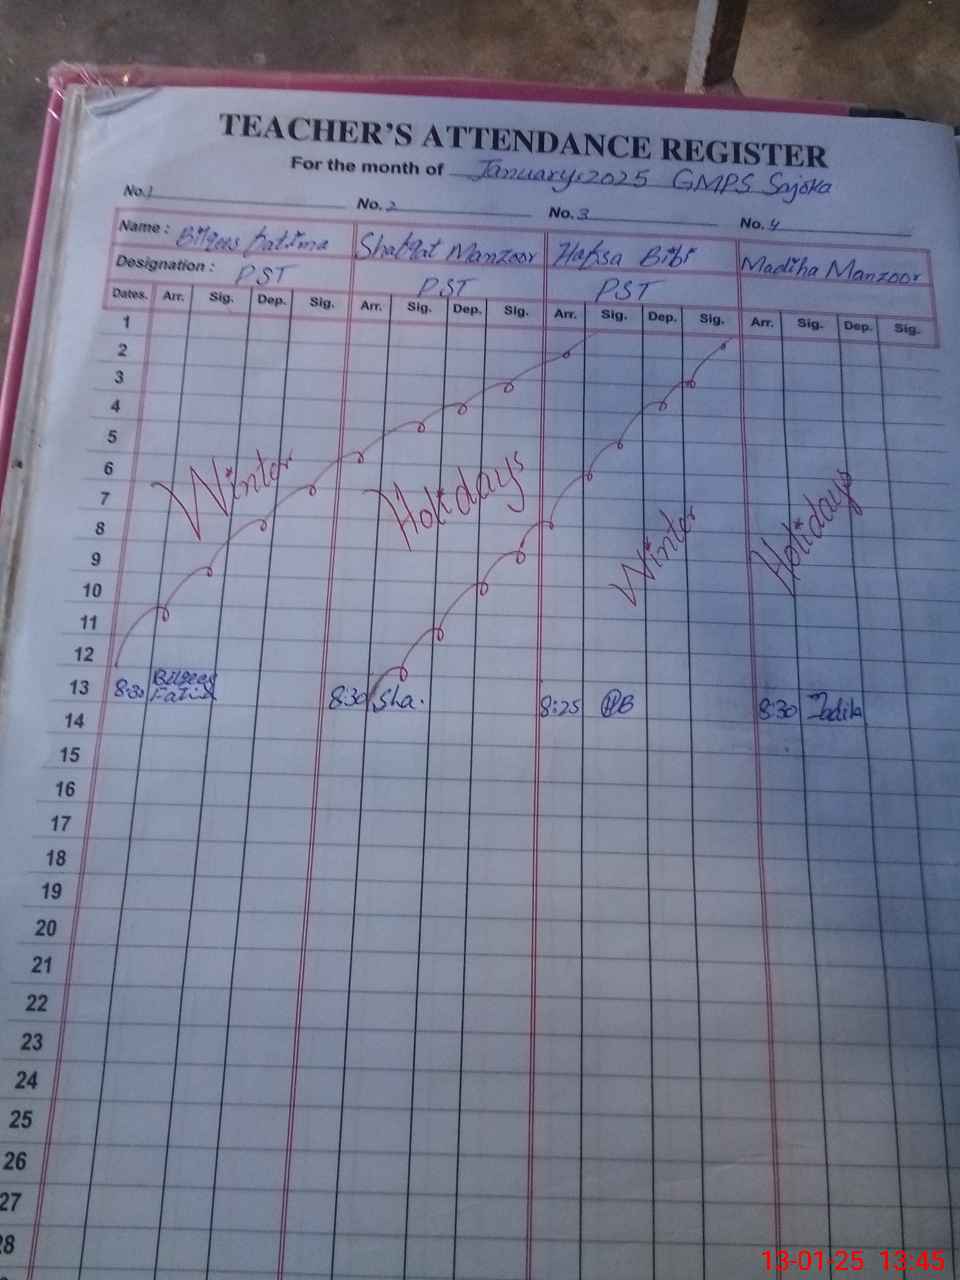 TEACHER'S ATTENDANCE REGISTER
For the month of January,2025 GMPS Sajoka
No.1 No. 2 No. 3 No. 4
Name : Bilqees Fatima Shafqat Manzoor Hafsa Bibi Madiha Manzoor
Designation : PST PST PST
Dates. Arr. Sig. Dep. Sig. Arr. Sig. Dep. Sig. Arr. Sig. Dep. Sig. Arr. Sig. Dep. Sig.
1
2
3
4
5
6
Winter Holidays
7
8
Winter Holidays
9
10
11
12
13 8:30 Bilqees Fatima 8:30 Sha. 8:25 HB 8:30
14
15
16
17
18
19
20
21
22
23
24
25
26
27
28
13-01-25 13:45